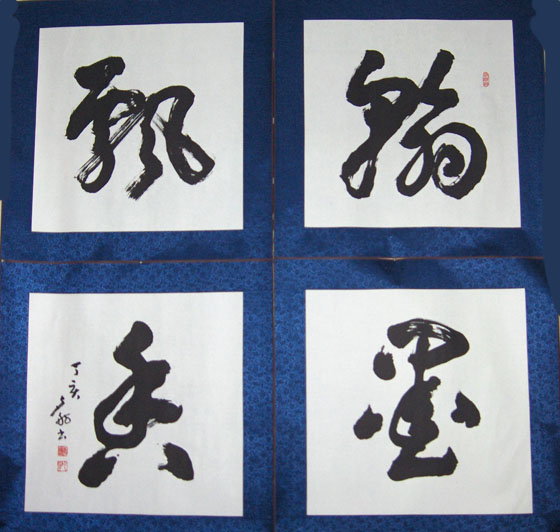 翰
墨
飘
香
丁亥
书